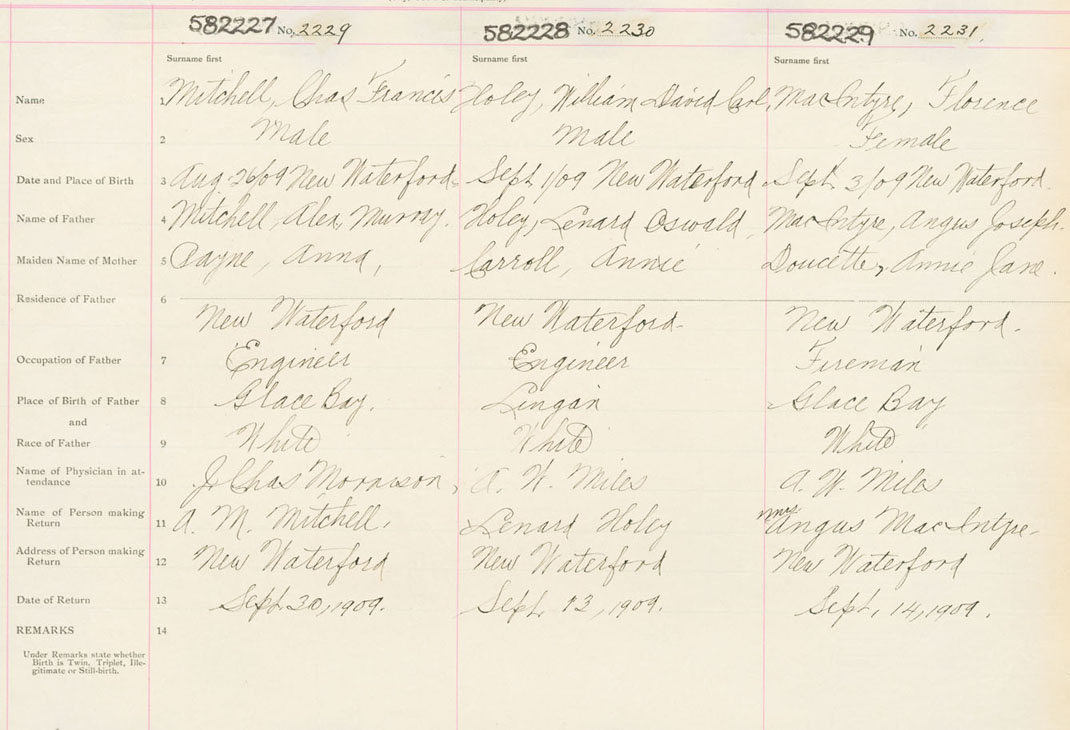 582227 No. 2229 582228 No. 2230 582229 No. 2231.
Surname first Surname first Surname first
Name 1 Mitchell, Chas Francis Holey, William David Carl, MacIntyre, Florence
Sex 2 Male Male Female
Date and Place of Birth 3 Aug 26/09 New Waterford Sept 1/09 New Waterford Sept 3/09 New Waterford.
Name of Father 4 Mitchell, Alex, Murray. Holey, Lenard Oswald, MacIntyre, Angus Joseph.
Maiden Name of Mother 5 Payne, Anna, Carroll, Annie Doucette, Annie Jane.
Residence of Father 6
New Waterford New Waterford- New Waterford.
Occupation of Father 7 Engineer Engineer Fireman
Place of Birth of Father 8 Glace Bay. Lingan Glace Bay
and
Race of Father 9 White White White
Name of Physician in at-
tendance 10 J. Chas Morrison, A. W. Miles A. W. Miles
Name of Person making
Return 11 A. M. Mitchell. Lenard Holey Mrs Angus MacIntyre-
Address of Person making
Return 12 New Waterford New Waterford New Waterford
Date of Return 13 Sept 30, 1909. Sept. 13, 1909. Sept, 14, 1909.
REMARKS 14
Under Remarks state whether
Birth is Twin, Triplet, Ille-
gitimate or Still-birth.